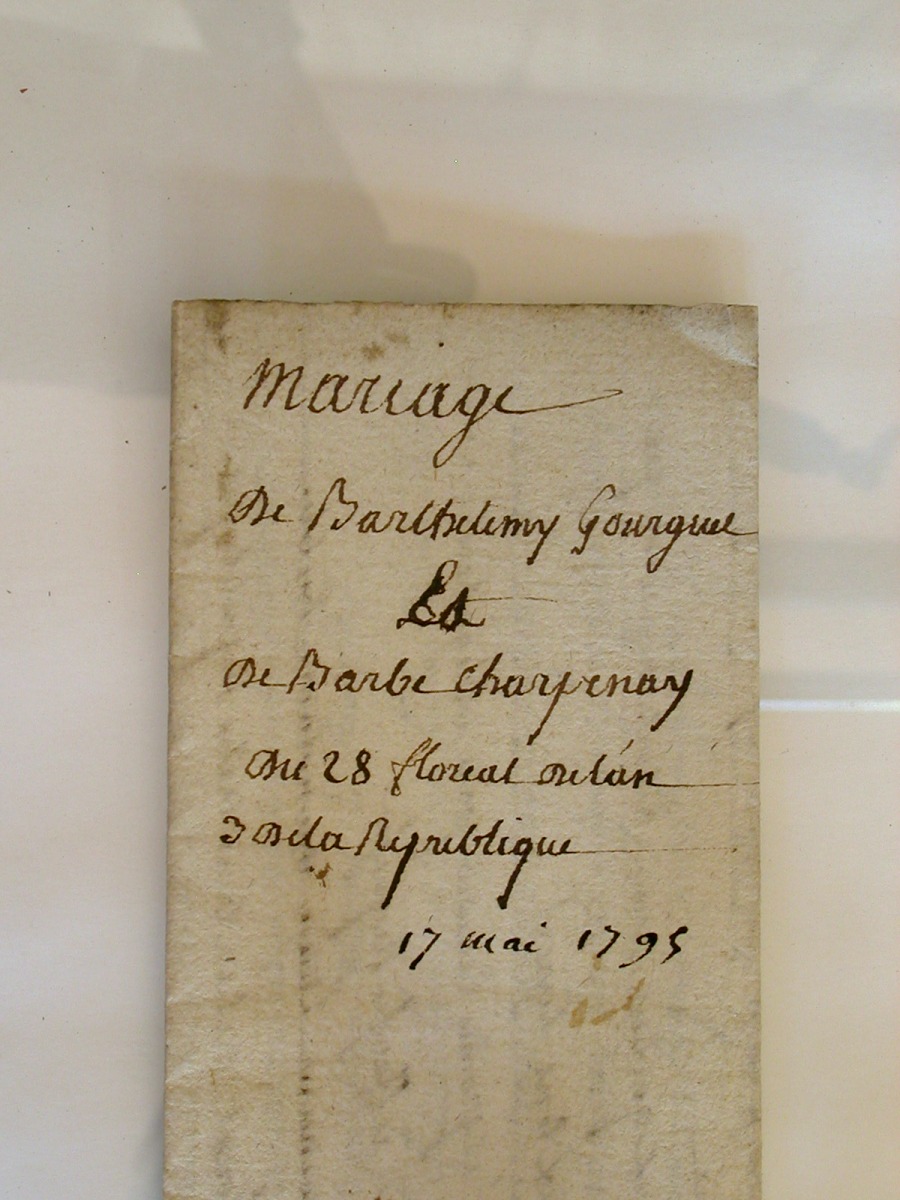 Mariage
De Barthelemy Gourguel
Et
De Barbe Charpenay
Du 28 floreal Delán
3 Dela Republique
17 mai 1795